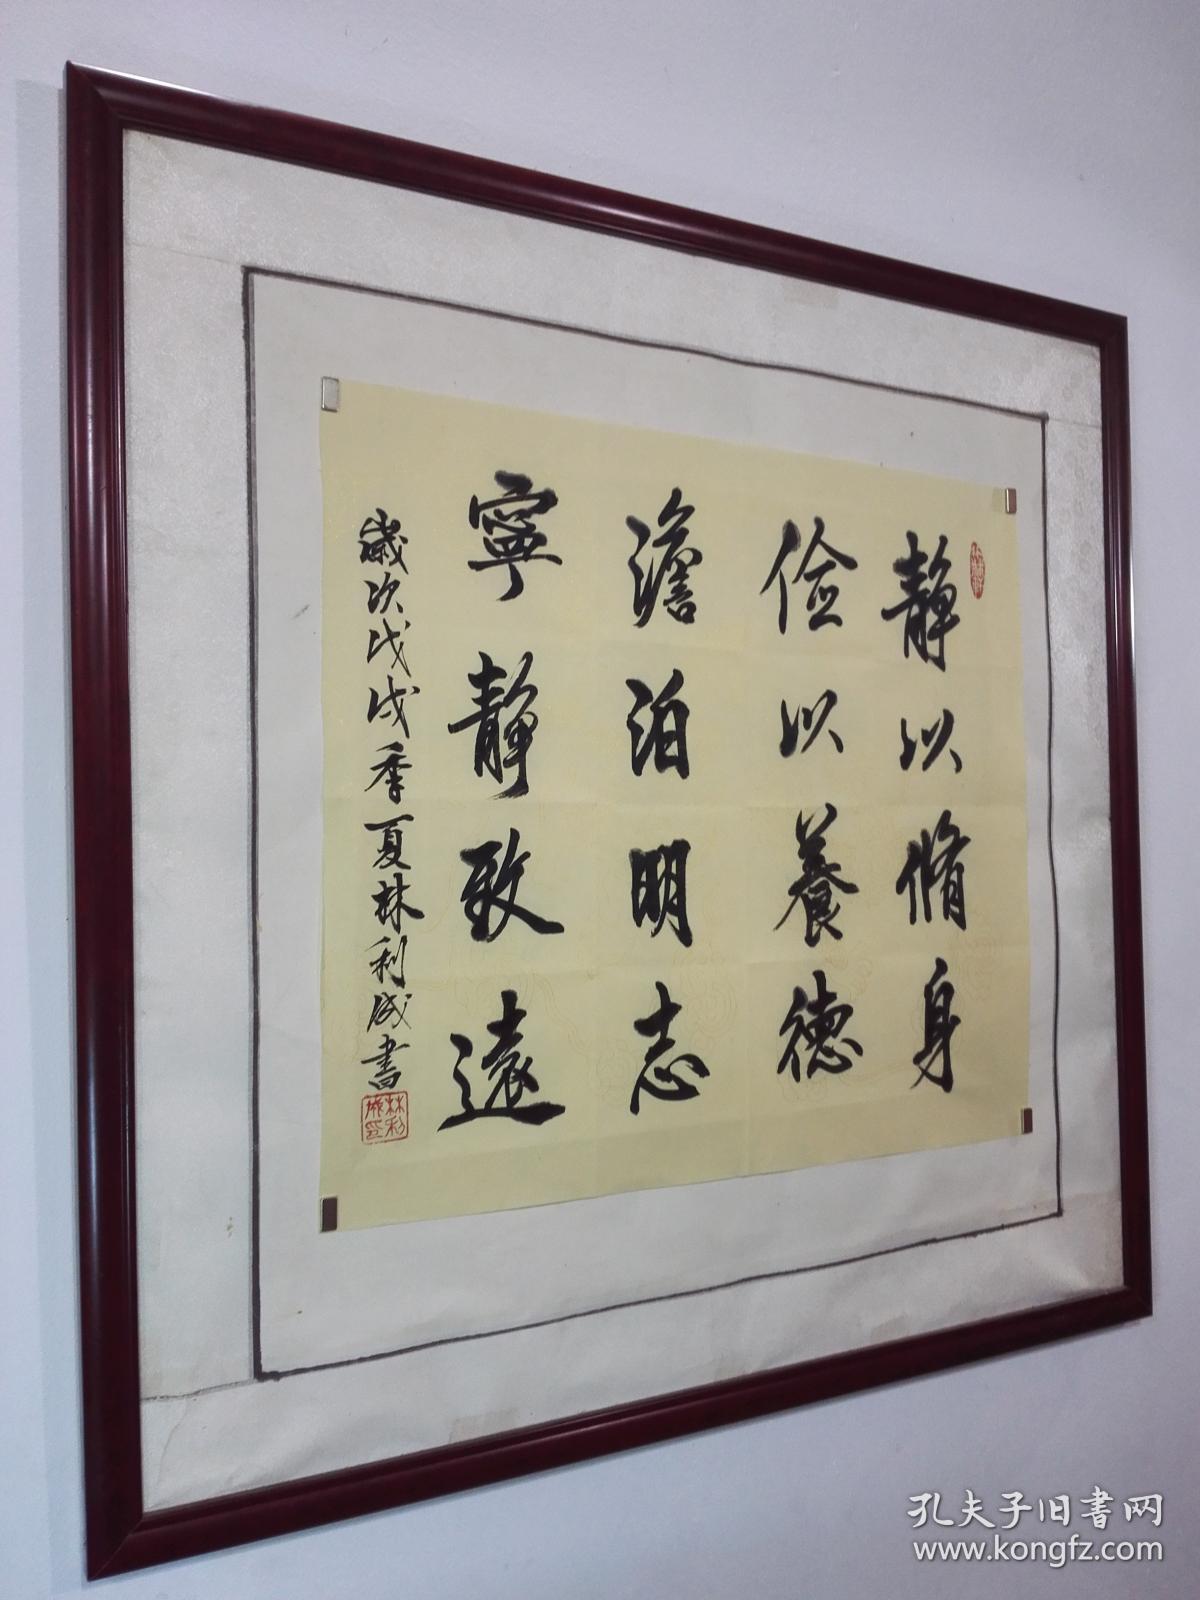 静以脩身
俭以養德
澹泊明志
寧静致遠
歲次戊戌季夏林利成書
林利成印
孔夫子旧書网
www.kongfz.com